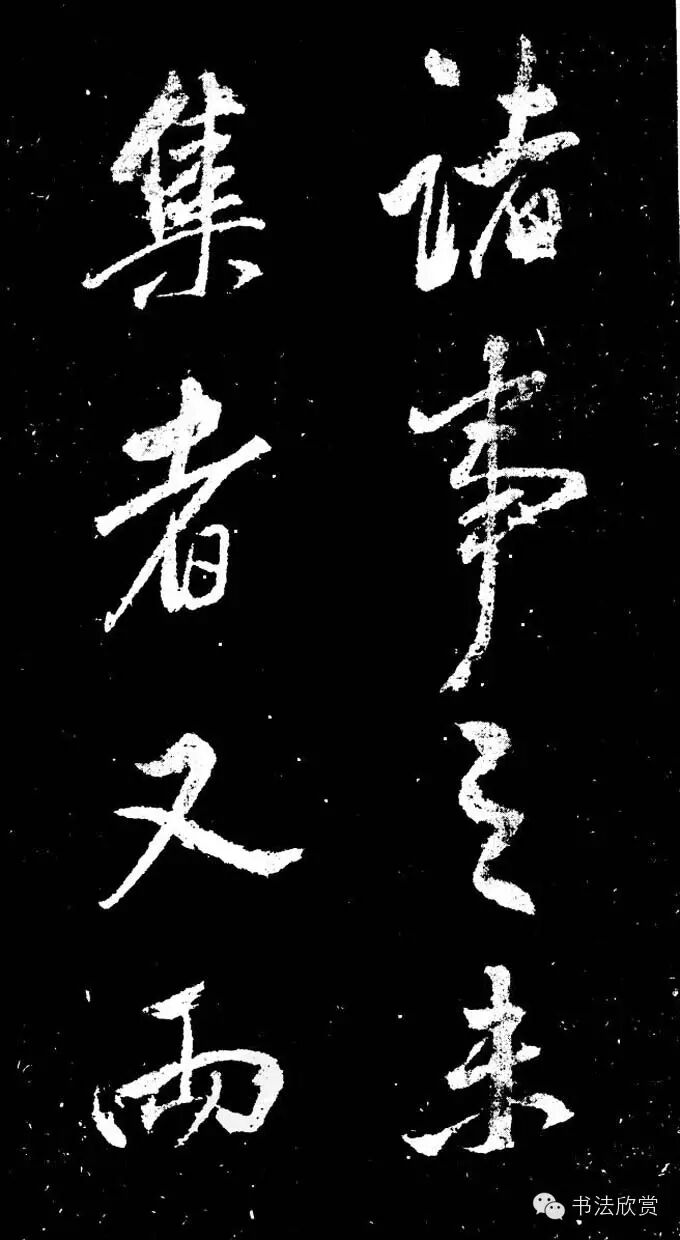 諸事之未
集者又兩
书法欣赏